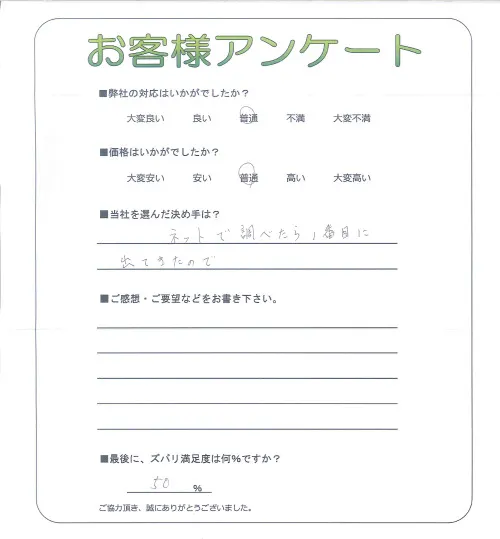 お客様アンケート
■弊社の対応はいかがでしたか？
大変良い 良い 普通 不満 大変不満
■価格はいかがでしたか？
大変安い 安い 普通 高い 大変高い
■当社を選んだ決め手は？
ネットで調べたら1番目に
出てきたので
■ご感想・ご要望などをお書き下さい。
■最後に、ズバリ満足度は何％ですか？
50 ％
ご協力頂き、誠にありがとうございました。